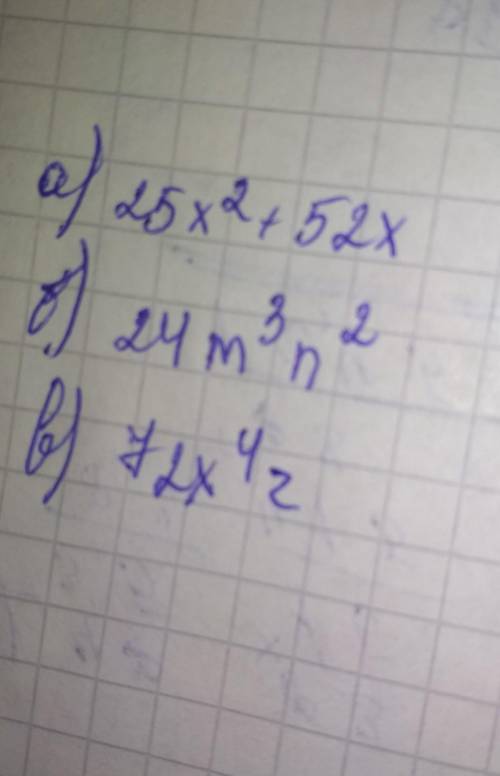 а) 25x² + 52x
б) 24m³n²
в) 72x⁴г